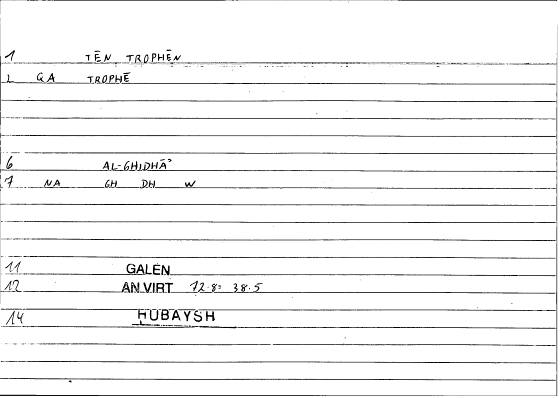 1 TĒN TROPHĒN
2 GA TROPHĒ
6 AL-GHIDHĀʾ
7 NA GH DH W
11 GALEN
12 AN VIRT 12.8 = 38.5
14 ḤUBAYSH